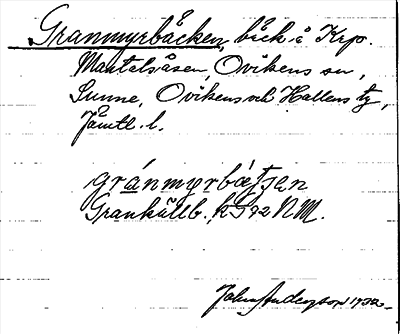 Granmyrbäcken, bäck å Krp.
Mantalsåsen, Ovikens sn,
Sunne, Ovikens och Hallens tg,
Jämtl. l.
gránmyrbæ̀tʃan
Grankällb. kG 92 NM.
John Anderson 1932